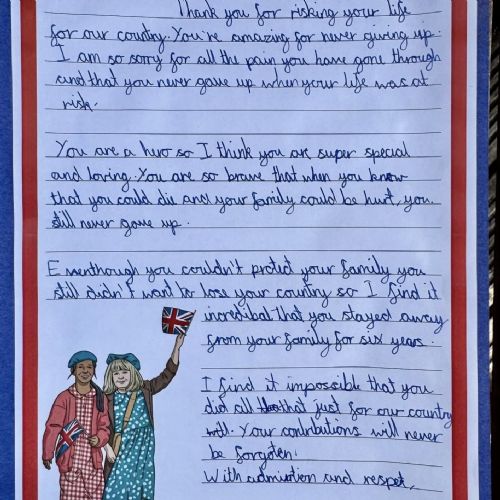 Thank you for risking your life
for our country. You're amazing for never giving up.
I am so sorry for all the pain you have gone through
and that you never gave up when your life was at
risk.
You are a hero so I think you are super special
and loving. You are so brave that when you know
that you could die and your family could be hurt, you
still never gave up.
Eventhough you couldn't protect your family you
still didn't want to lose your country so I find it
incredibal that you stayed away
from your family for six years.
I find it impossible that you
did all that just for our country
Your contributions will never
be forgoten.
With admiration and respet,